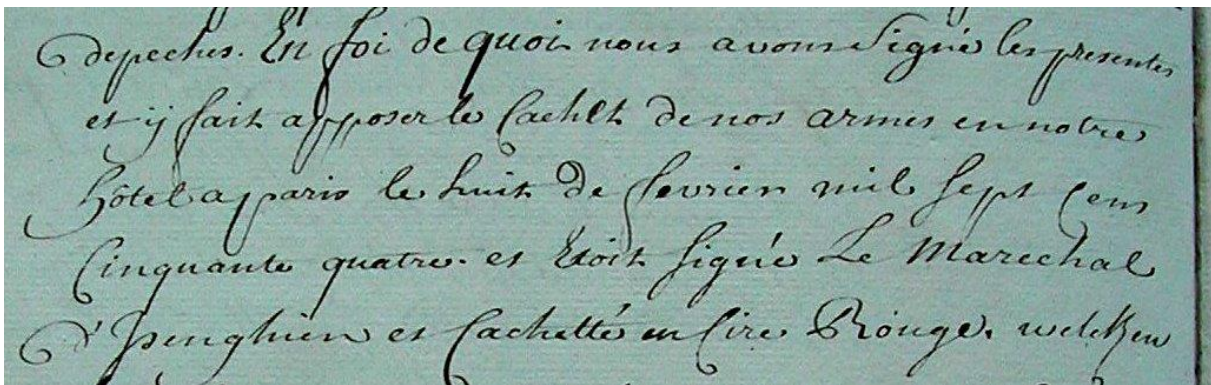 depeches. En foi de quoi nous avons signé les presentes
et ij fait apposer le Cachet de nos armes en notre
hôtel a paris le huit de fevrier mil sept Cens
Cinquante quatre. et Etoit signé Le Marechal
d'Isenghien et Cachetté en Cire Rouge. welcken